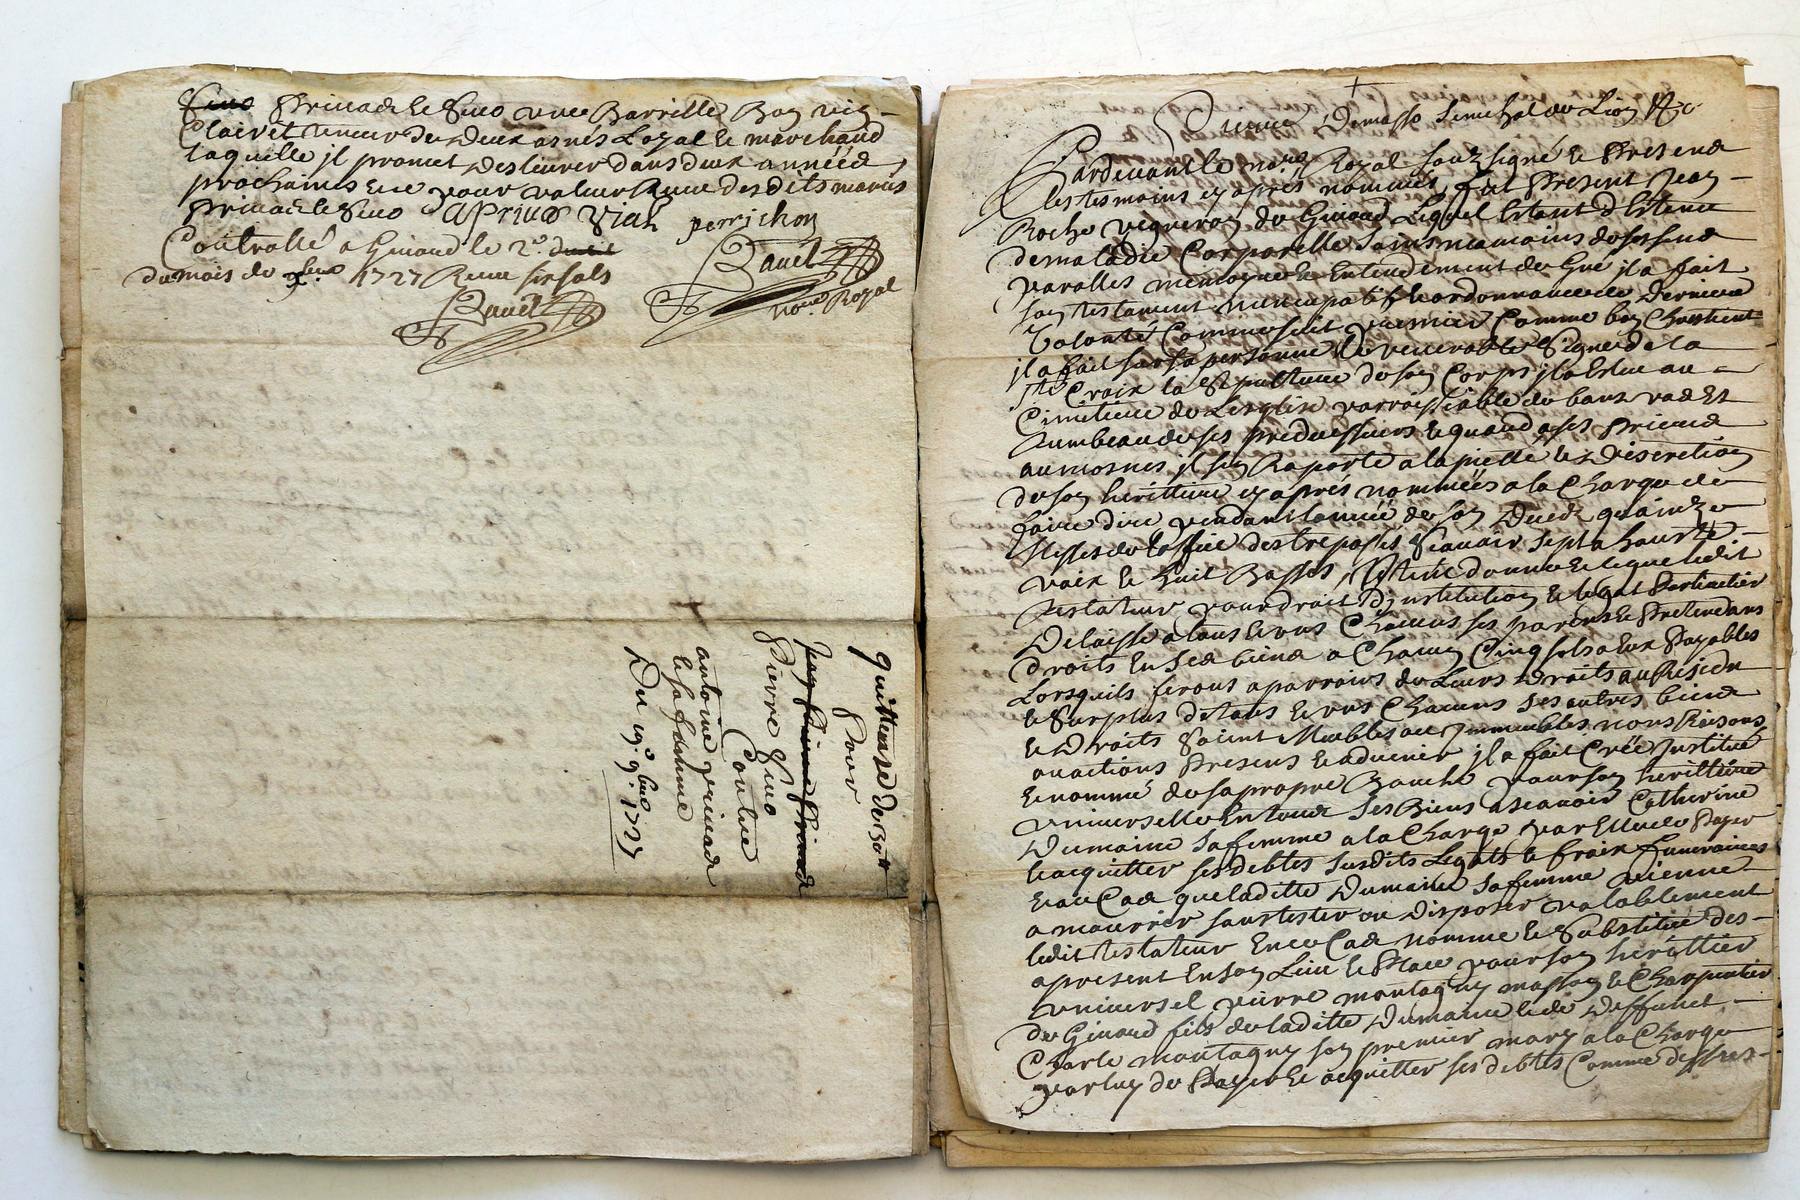 Suno Privact le Suno une Barrille Bon vin
Clairet teneur de deux asnés Loyal le marchand
laquelle jl promet deslivrer dans deux années
prochaines ene pour valeur Reeue desdits mariés
Privact le Suno A Privas Vial perrichon
Controllé a Givord le 2e. dudit
du mois de xbre 1727 Receu six sols
Ravel
no.re Royal
Ravel
quittance de 50 tt
Pour
Pierre Suno
Contre
antoine privact
le sa femme
Du 19e. 9bre 1727
+
Pardevant le no.re Royal soubsigné le Present
des tesmoins cy apres nommés fut Present Jean
Roche vigneron de Givord Lequel Estant detenu
de maladie Corporelle sains neamoins de ses sens
parolles memoyre le Entendement de Gré jl a fait
son testament nuncupatif le ordonnance de derniere
Volonté Comme suit premier Comme bon Chrestient
jl a fait sur sa personne le venerable Signe de la
Ste Croix la Sepulture de son Corps jl a Eslue au
Cimitiere de Lesglise parroissiable de
tumbeau de ses predecesseurs le quand a ses Prieres
aumosnes jl s'en Raporte a la pieté le discretion
de son heritiere cy apres nommées a la Charge de
faire dire pendant l'année de son deced quainze
Messes de Loffice des trepassés Scavoir sept a haute
voix le huit Basses, Item donne le legue ledit
testateur pour droit d'institution le legat Particulier
Delaisse a tous le uns Chacuns ses parens le Pretendans
droits En sed biend a Chacun Cinq sols a Eux Payables
Lorsquils feront aparroirs de Leurs droits au Residu
le Surplus de tous le uns Chacuns ses autres biend
le droits Soient Meubles ou Immeubles noms Raisons
ou actions Presens le advenir jl a fait Créé Institué
le nommé de sa propre Bouche pour son heritiere
universelle En tous ses Biens a scavoir Catherine
Dumaine sa femme a la Charge par Elle de Payer
le acquitter ses debtes susdits Legats le fraix funeraires
le au Cad que la ditte Dumaine sa femme vienne
a mourir sans tester ou disposer valablement
ledit testateur En ce Cad nomme le Substitue des
apresent En son Lieu le Place pour son heritier
universel pierre montagny masson le Charpentier
de Givord fils de la ditte Dumaine le de deffunct
Charle montagny son premier mary a la Charge
par luy de Payer le acquitter ses debtes Comme dess